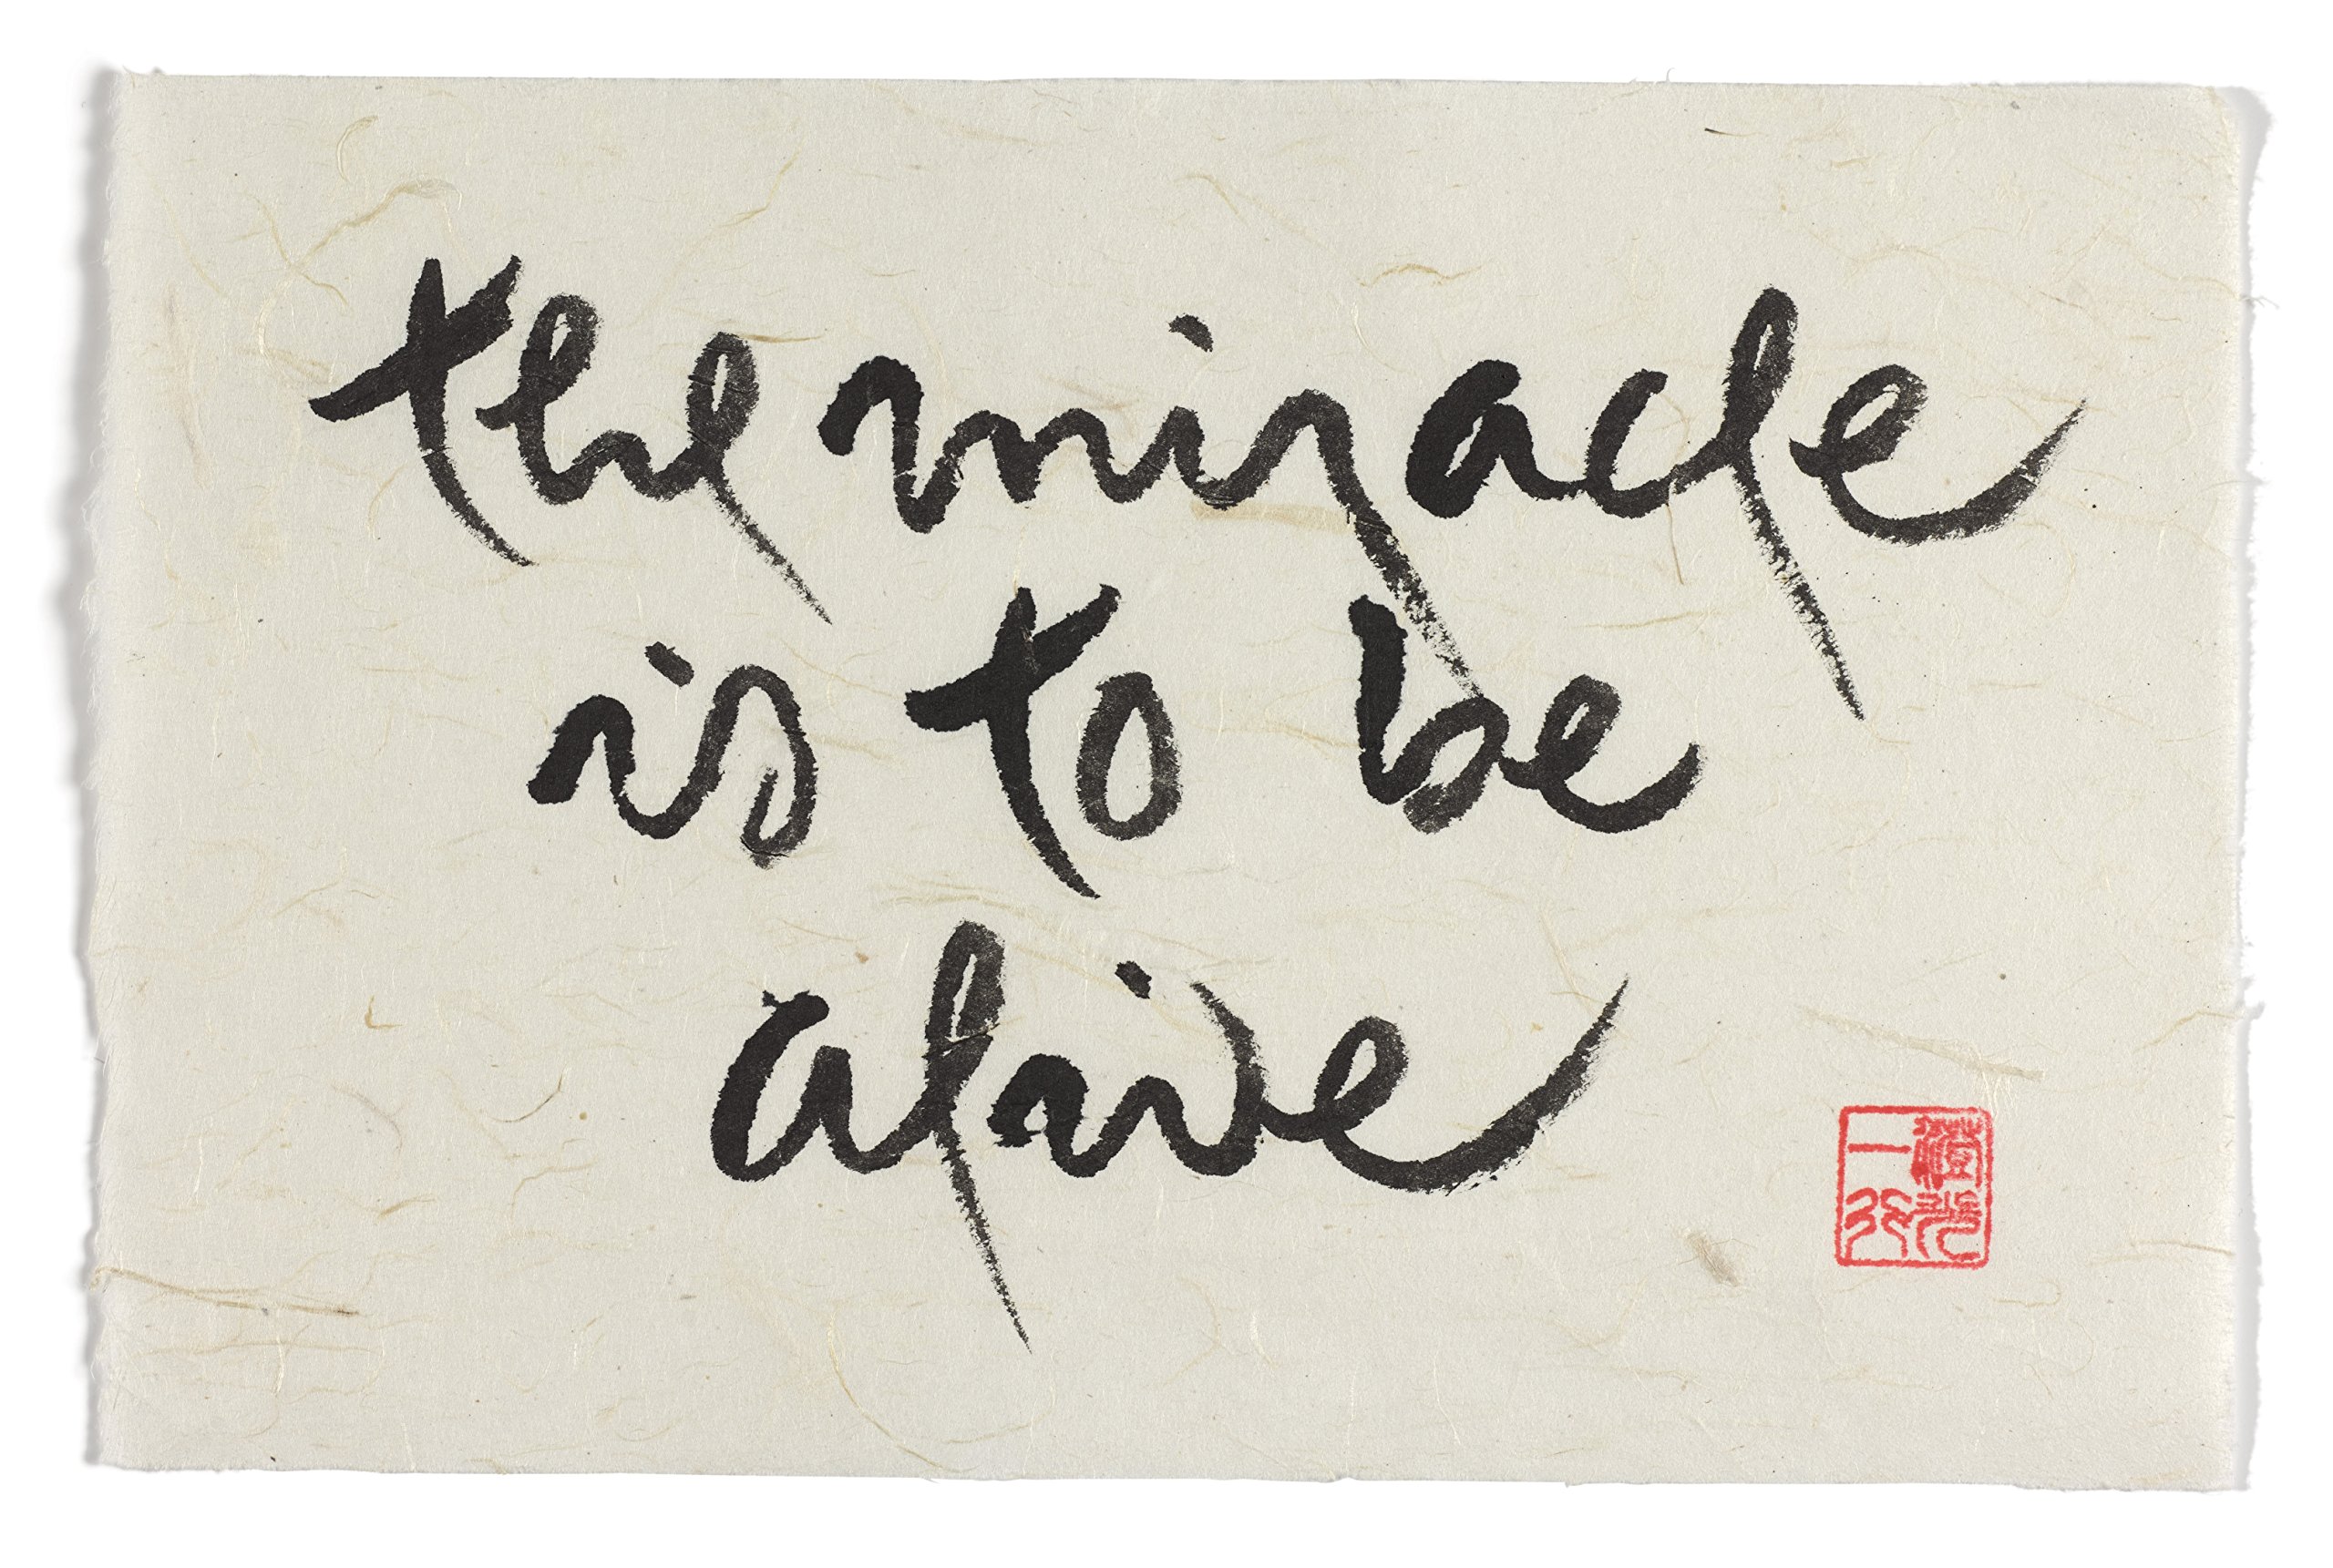 the miracle
is to be
alive
澄光
一行